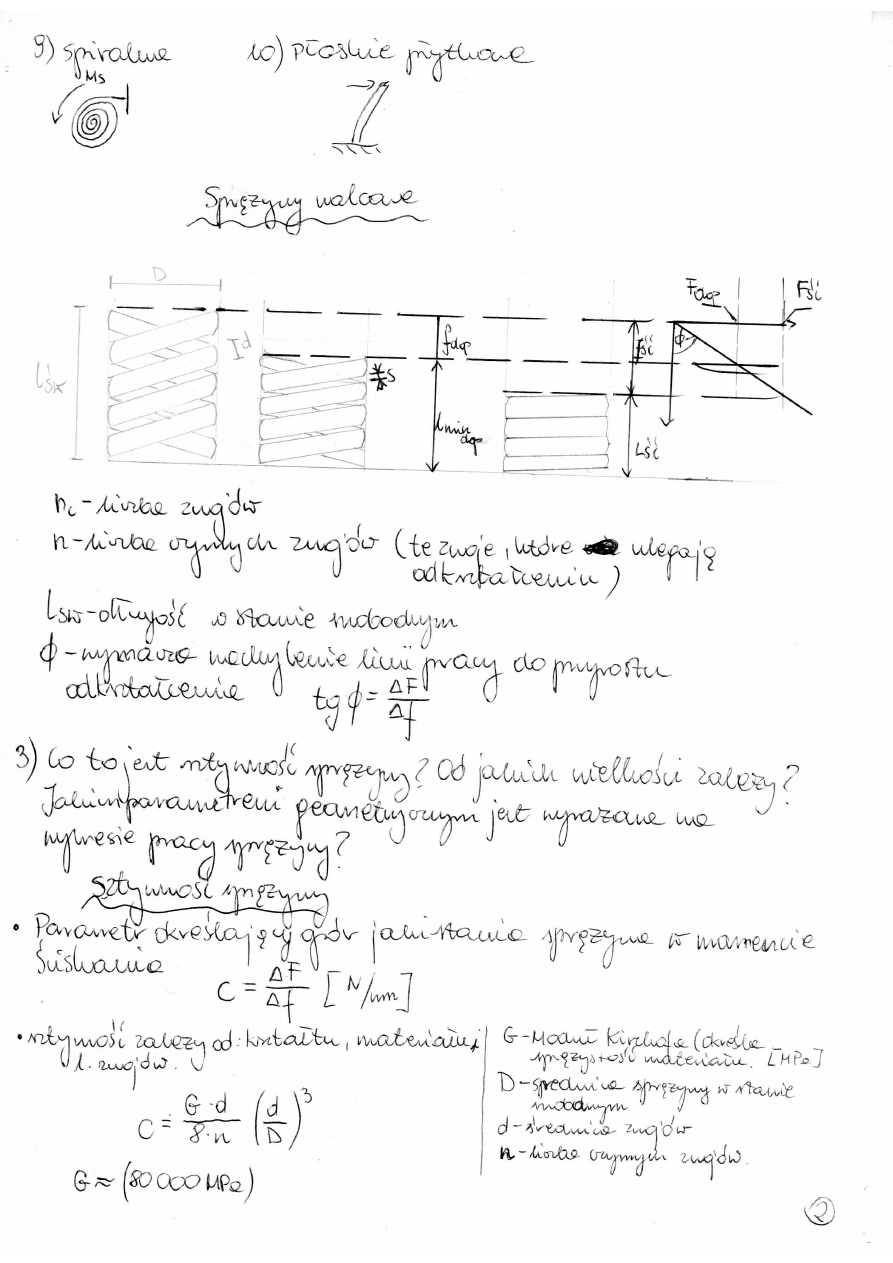 9) spiralne 10) Płaskie płytkowe
Ms
Sprężyny walcowe
D
Fdop Fść
d
fdop
fść
ϕ
Lśw
s
Lmin dop
Lść
nc - liczba zwojów
n - liczba czynnych zwojów (te zwoje, które ulegają
odkształceniu)
Lsw - długość w stanie swobodnym
ϕ - wyraża nachylenie linii pracy do przyrostu
odkształcenia tg ϕ = ΔF/Δf
3) Co to jest sztywność sprężyny? Od jakich wielkości zależy?
Jakim parametrem geometrycznym jest wyrażana na
wykresie pracy sprężyny?
Sztywność sprężyny
• Parametr określający opór jaki stawia sprężyna w momencie
ściskania
C = ΔF/Δf [N/mm]
• sztywność zależy od: kształtu, materiału,
l. zwojów.
C = G·d/8·n (d/D)³
G ≈ (80 000 MPa)
G - Moduł Kirchofa (określa
sprężystość materiału. [MPa]
D - średnica sprężyny w stanie
swobodnym
d - średnica zwojów
n - liczba czynnych zwojów.
2